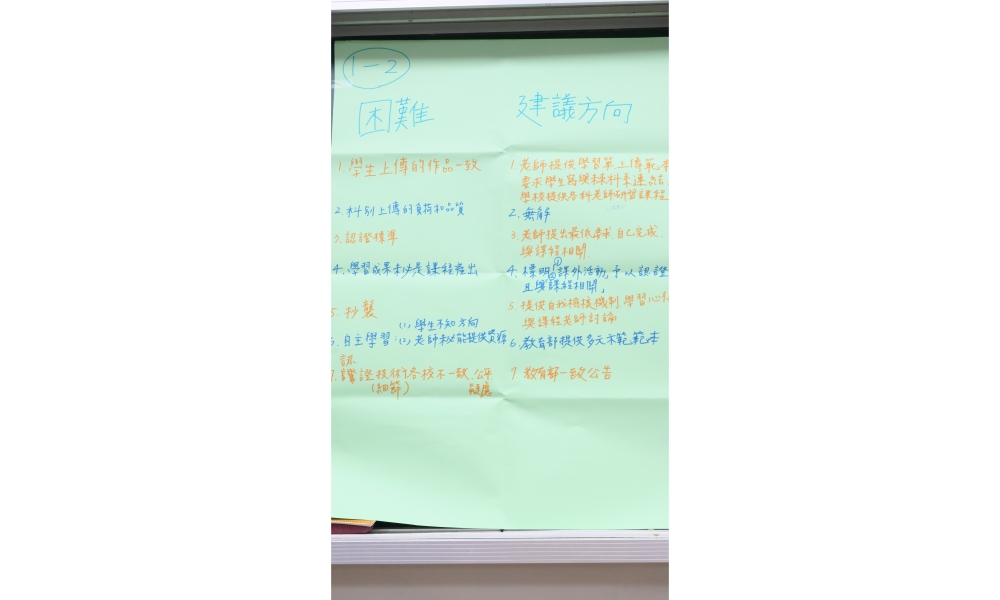 1-2
困難
1.學生上傳的作品一致
2.科別上傳的負荷和品質
3.認證標準
4.學習成果未必是課程產出
5.抄襲
(1)學生不知方向
6.自主學習:(2)老師未必能提供資源
認
7.證技術各校不一致.公平
(細節)
建議方向
1.老師提供學習單上傳範本
要求學生寫與科系連結.
學校提供各科老師研習課程
2.無解
3.老師提出最低要求.自己完成.
與課程相關.
4.標明課外活動,予以認證
且與課程相關,
5.提供自我檢核機制.學習心得
與課程老師討論
6.教育部提供多元示範範本
7.教育部一致公告